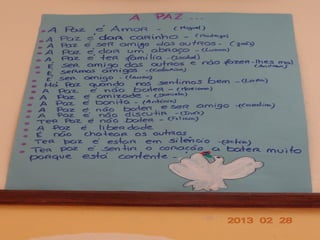 A PAZ...
A Paz é Amor - (Miguel)
A Paz é dar carinho -
A Paz é ser amigo dos outros - (José)
A Paz é dar um abraço -
A Paz é ter família -
É ser amigo dos outros e não fazer-lhes mal
É sermos amigos -
É ser amigo -
Há Paz quando nos sentimos bem -
A Paz é não bater -
A Paz é amizade -
A Paz é bonita - (António)
A Paz é não bater e ser amigo - (Carolina)
A Paz é não discutir -
Ter Paz é não bater -
A Paz é liberdade
É não chatear os outros
Ter paz é estar em silêncio -
Ter Paz é sentir o coração a bater muito
porque está contente -
2013 02 28